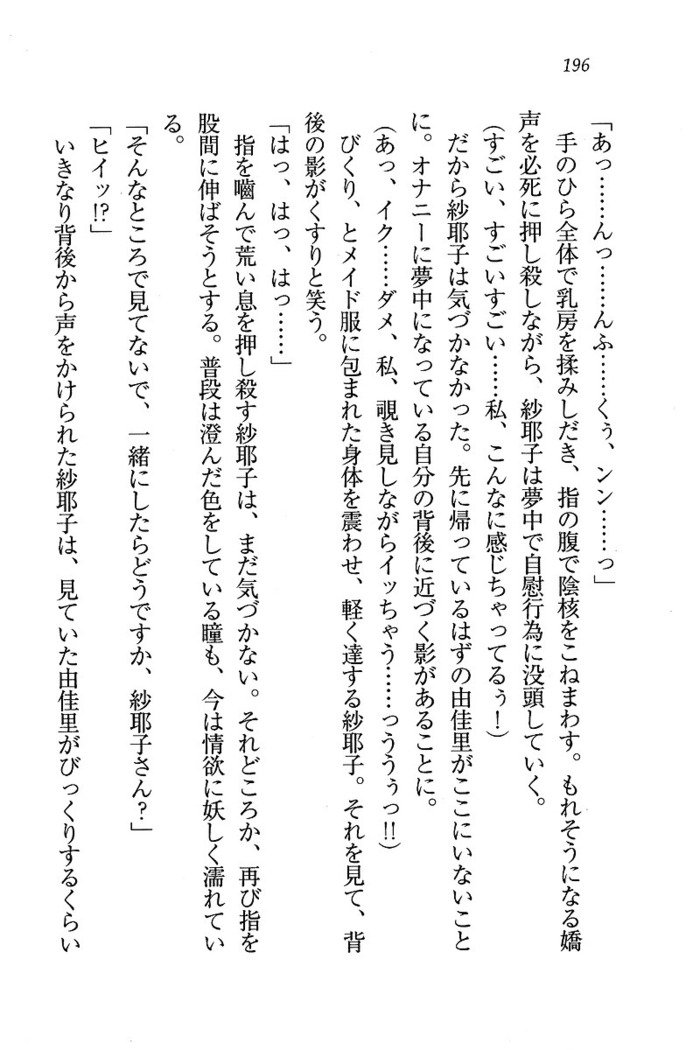 196
「あっ……んっ……んふ……くぅ、ンン……っ」
手のひら全体で乳房を揉みしだき、指の腹で陰核をこねまわす。もれそうになる嬌
声を必死に押し殺しながら、紗耶子は夢中で自慰行為に没頭していく。
(すごい、すごいすごい……私、こんなに感じちゃってるぅ!)
だから紗耶子は気づかなかった。先に帰っているはずの由佳里がここにいないこと
に。オナニーに夢中になっている自分の背後に近づく影があることに。
(あっ、イク……ダメ、私、覗き見しながらイッちゃう……っううぅっ!!)
びくり、とメイド服に包まれた身体を震わせ、軽く達する紗耶子。それを見て、背
後の影がくすりと笑う。
「はっ、はっ、はっ……」
指を嚙んで荒い息を押し殺す紗耶子は、まだ気づかない。それどころか、再び指を
股間に伸ばそうとする。普段は澄んだ色をしている瞳も、今は情欲に妖しく濡れてい
る。
「そんなところで見てないで、一緒にしたらどうですか、紗耶子さん?」
「ヒイッ!?」
いきなり背後から声をかけられた紗耶子は、見ていた由佳里がびっくりするくらい